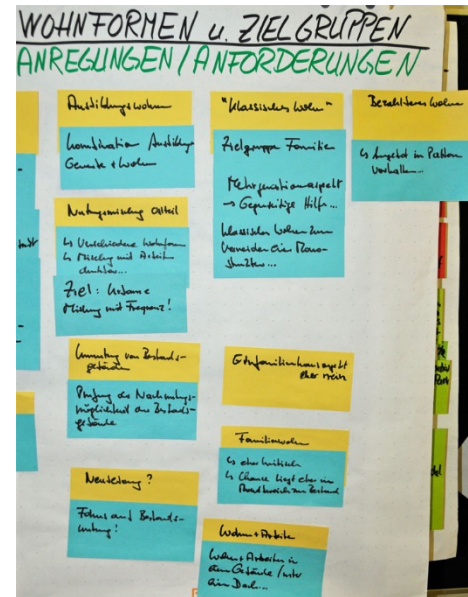 WOHNFORMEN u. ZIELGRUPPEN
ANREGUNGEN / ANFORDERUNGEN
Ausbildungswohnen
Kombination Ausbildung
Gewerbe + Wohnen
Nutzungsmischung
↳ Verschiedene Wohnformen
↳ Mischung mit Arbeiten
denkbar...
Ziel:
Mischung mit Frequenz!
Umnutzung von Bestands-
gebäuden
Prüfung der Nachnutzungs-
möglichkeit der Bestands-
gebäude
Neudeutung?
Fokus auf Bestands-
nutzung!
"Klassisches Wohnen"
Zielgruppe Familie
Mehrgenerationenaspekt
→ Gegenseitige Hilfe...
klassisches Wohnen zum
Vermeiden einer Mono-
struktur...
Einfamilienhausaspekt
eher nein
Familienwohnen
↳ eher kritisch
↳ Chance liegt eher im
zum Bestand
Wohnen + Arbeiten
Wohnen + Arbeiten in
einem Gebäude / unter
ein Dach...
Bezahlbares Wohnen
↳ Angebot in
vorhalten...